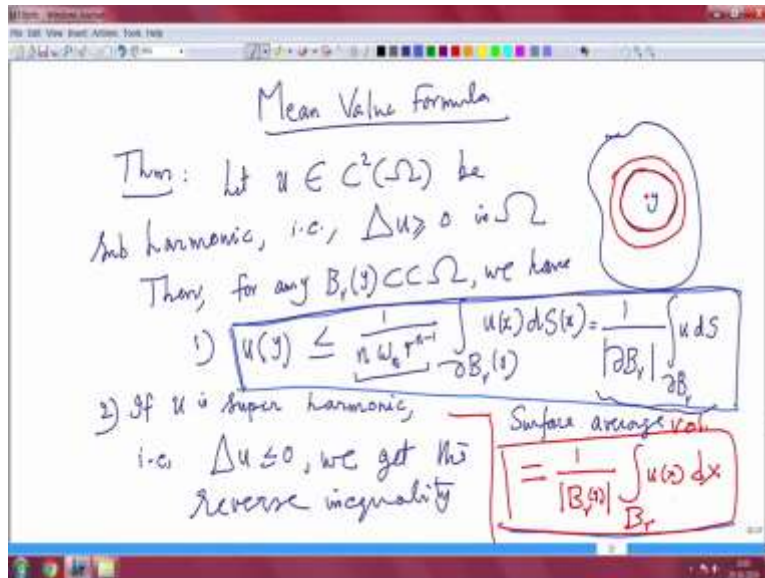 File Edit View Insert Actions Tools Help
Mean Value Formula
Thm: Let u ∈ C²(Ω) be
Sub harmonic, i.e., Δu ≥ 0 in Ω
Then, for any B_r(y) ⊂⊂ Ω, we have
y
1) u(y) ≤ 1/(n ω_n r^{n-1}) ∫_{∂B_r(y)} u(x) dS(x) = 1/|∂B_r| ∫_{∂B_r} u dS
2) If u is super harmonic,
Surface average vol.
i.e. Δu ≤ 0, we get the
reverse inequality
= 1/|B_r(y)| ∫_{B_r} u(x) dx